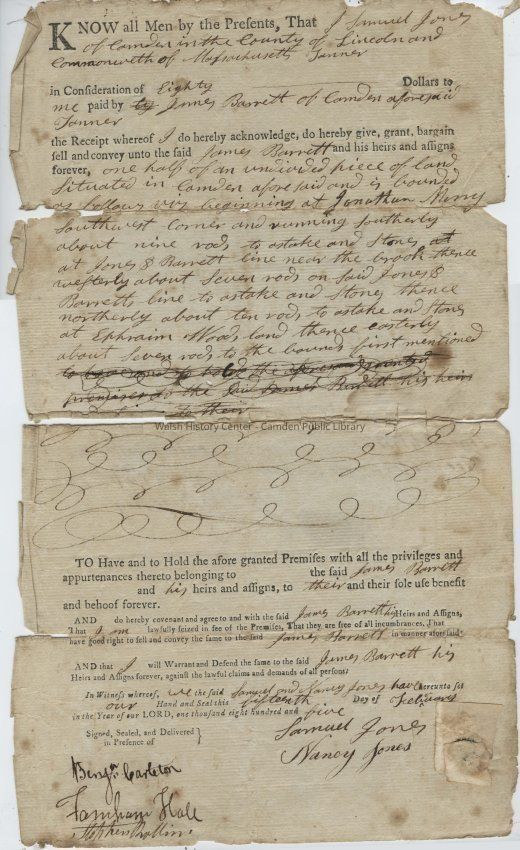 KNOW all Men by the Presents, That I Samuel Jones
of Camden in the County of Lincoln and
Commonweth of Massachusetts Tanner
in Consideration of Eighty Dollars to
me paid by James Barrett of Camden aforesaid
Tanner
the Receipt whereof I do hereby acknowledge, do hereby give, grant, bargain
sell and convey unto the said James Barrett and his heirs and assigns
forever, one half of an undivided piece of land
Situated in Camden aforesaid and is bounded
as follows viz beginning at Jonathan Merry
Southwest Corner and running Southerly
about nine rods to astake and Stones at
at Jones & Barrett line near the brook thence
westerly about Seven rods on said Jones &
Barretts line to astake and Stones thence
northerly about ten rods to astake and Stones
at Ephraim Woods land thence easterly
about Seven rods to the bounds first mentioned
to have and to hold the aforesaid granted
premises to the said James Barrett his heirs
to their
Walsh History Center - Camden Public Library
TO Have and to Hold the afore granted Premises with all the privileges and
appurtenances thereto belonging to the said James Barrett
and his heirs and assigns, to their and their sole use benefit
and behoof forever.
AND do hereby covenant and agree to and with the said James Barrett his Heirs and Assigns,
That I am lawfully seized in fee of the Premises, That they are free of all incumbrances, That
have good right to sell and convey the same to the said James Barrett in manner aforesaid
AND that I will Warrant and Defend the same to the said James Barrett his
Heirs and Assigns forever, against the lawful claims and demands of all persons
In Witness whereof, we the said Samuel and Nancy Jones have hereunto set
our Hand and Seal this fifteenth Day of February
in the Year of our LORD, one thousand eight hundred and five
Signed, Sealed, and Delivered
in Presence of
Samuel Jones
Nancy Jones
Benjn Carleton
Farnham Hall
Stephen